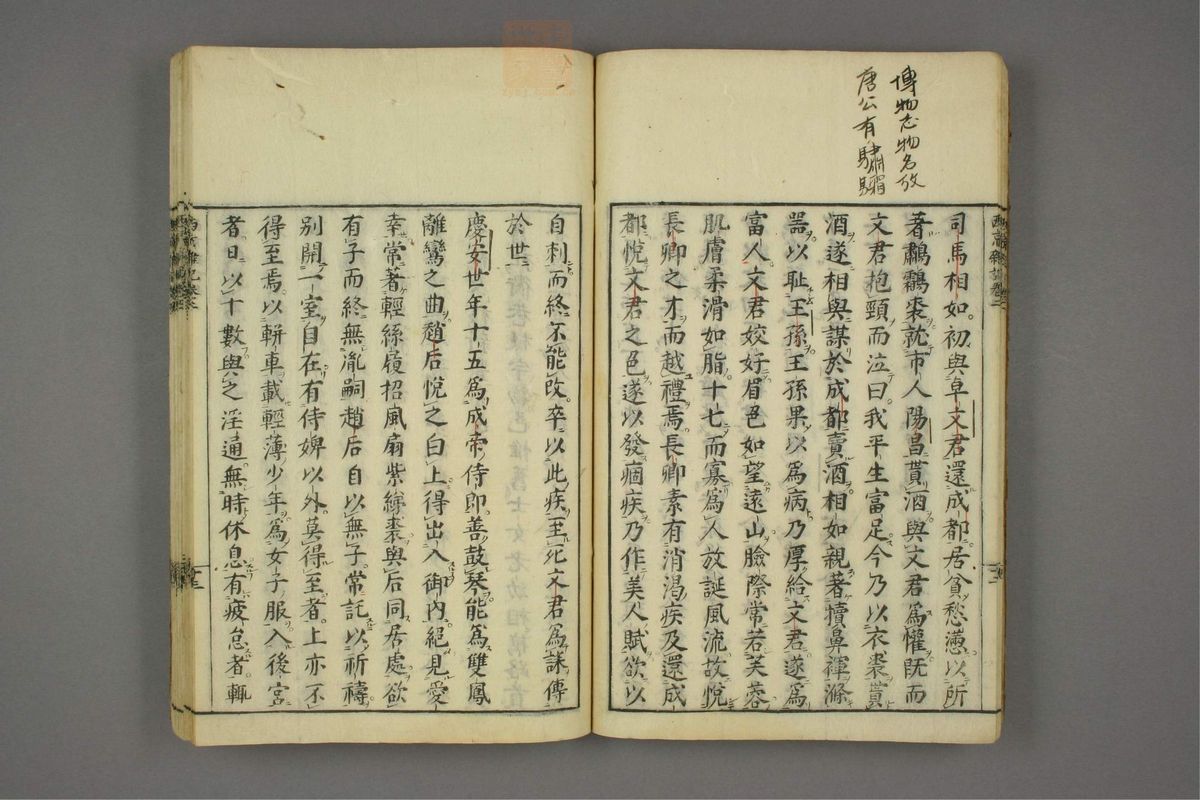 博物志物名攷
唐公有驌驦
司馬相如初與卓文君還成都居貧愁懣以所
著鷫鸘裘就市人陽昌貰酒與文君爲懽旣而
文君抱頸而泣曰我平生富足今乃以衣裘貰
酒遂相與謀於成都賣酒相如親著犢鼻褌滌
器以恥王孫王孫果以爲病乃厚給文君遂爲
富人文君姣好眉色如望遠山臉際常若芙蓉
肌膚柔滑如脂十七而寡爲人放誕風流故悅
長卿之才而越禮焉長卿素有消渴疾及還成
都悅文君之色遂以發痼疾乃作美人賦欲以
自刺而終不能改卒以此疾至死文君爲誄傳
於世
慶安世年十五爲成帝侍郎善鼓琴能爲雙鳳
離鸞之曲趙后悅之白上得出入御內絕見愛
幸常著輕絲履招風扇紫綈裘與后同居處欲
有子而終無胤嗣趙后自以無子常託以祈禱
別開一室自在有侍婢以外莫得至者上亦不
得至焉以軿車載輕薄少年爲女子服入後宮
者日以十數與之淫通無時休息有疲怠者輒